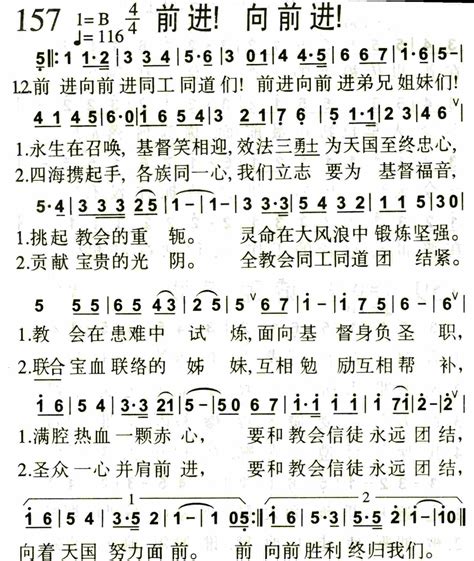 157 1=B 4/4 ♩=116 前进! 向前进!
5‖: 1 1·2 | 3 3 4 | 5·6 | 3 03 | 1 04 | 4·5 | 6 6 7 | i·6 | 5- |
12.前 进向前 进同工同道们! 前进向前进弟兄姐妹们!
4 1 4 5 | 6·0 | i 6 5 4 | 3 2 1 | 7 6 | 5 1·1 | 2 3 4 | 6 ⱽ |
1.永生在召唤, 基督笑相迎, 效法三勇士 为天国至终忠心,
2.四海携起手, 各族同一心, 我们立志 要为 基督福音,
5·4 | 3 3 3 2 5 | 1- | 1- | 3 3·3 | 5 4 3 2 | 1 1 2 3 | 5 | 3 0 |
1.挑起 教会的重 轭。 灵命在大风浪中 锻炼坚强。
2.贡献 宝贵的光 阴。 全教会同工同道团 结紧。
5 5 5 | 6 5 4 3 | 2 5 | 5 ⱽ 6 7 | i- | i 7 | 5 6 | 6 ⱽ |
1.教 会在患难中 试 炼,面向基 督身负圣 职,
2.联合 宝血联络的 姊 妹,互相勉 励互相帮 补,
i 6 | 5 4 | 3·3 2 1 | 5- | 5 0 6 7 | i·i i i | i 1 | i 7 i | 2̇-2̇ ⱽ |
1.满腔 热血一颗赤 心, 要和教会信徒永远团 结,
2.圣众 一心并肩前 进, 要和教会信徒永远团 结,
1 2
i 6 | 5 4 | 3·5 2 | 1- | 1 05 :‖ i 6 | 5·3 | 5·5 2 | 1- | i0 ‖
向着天国 努力面 前。 前 向前胜利 终归我们。